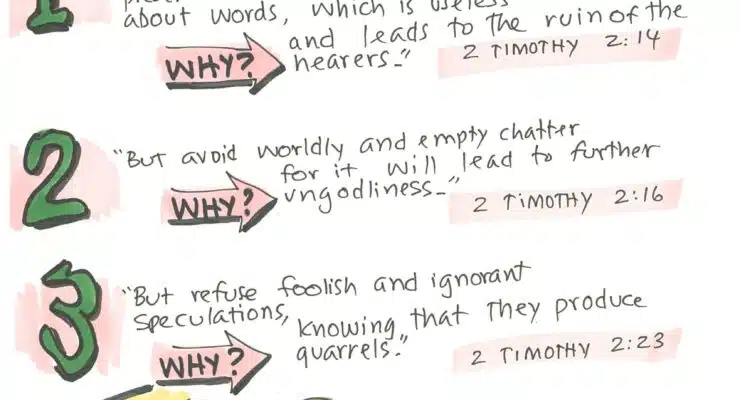 1
about words, which is useless
and leads to the ruin of the
WHY? hearers."
2 TIMOTHY 2:14
2 "But avoid worldly and empty chatter
for it will lead to further
WHY? ungodliness."
2 TIMOTHY 2:16
3 "But refuse foolish and ignorant
speculations,
knowing that they produce
WHY? quarrels."
2 TIMOTHY 2:23